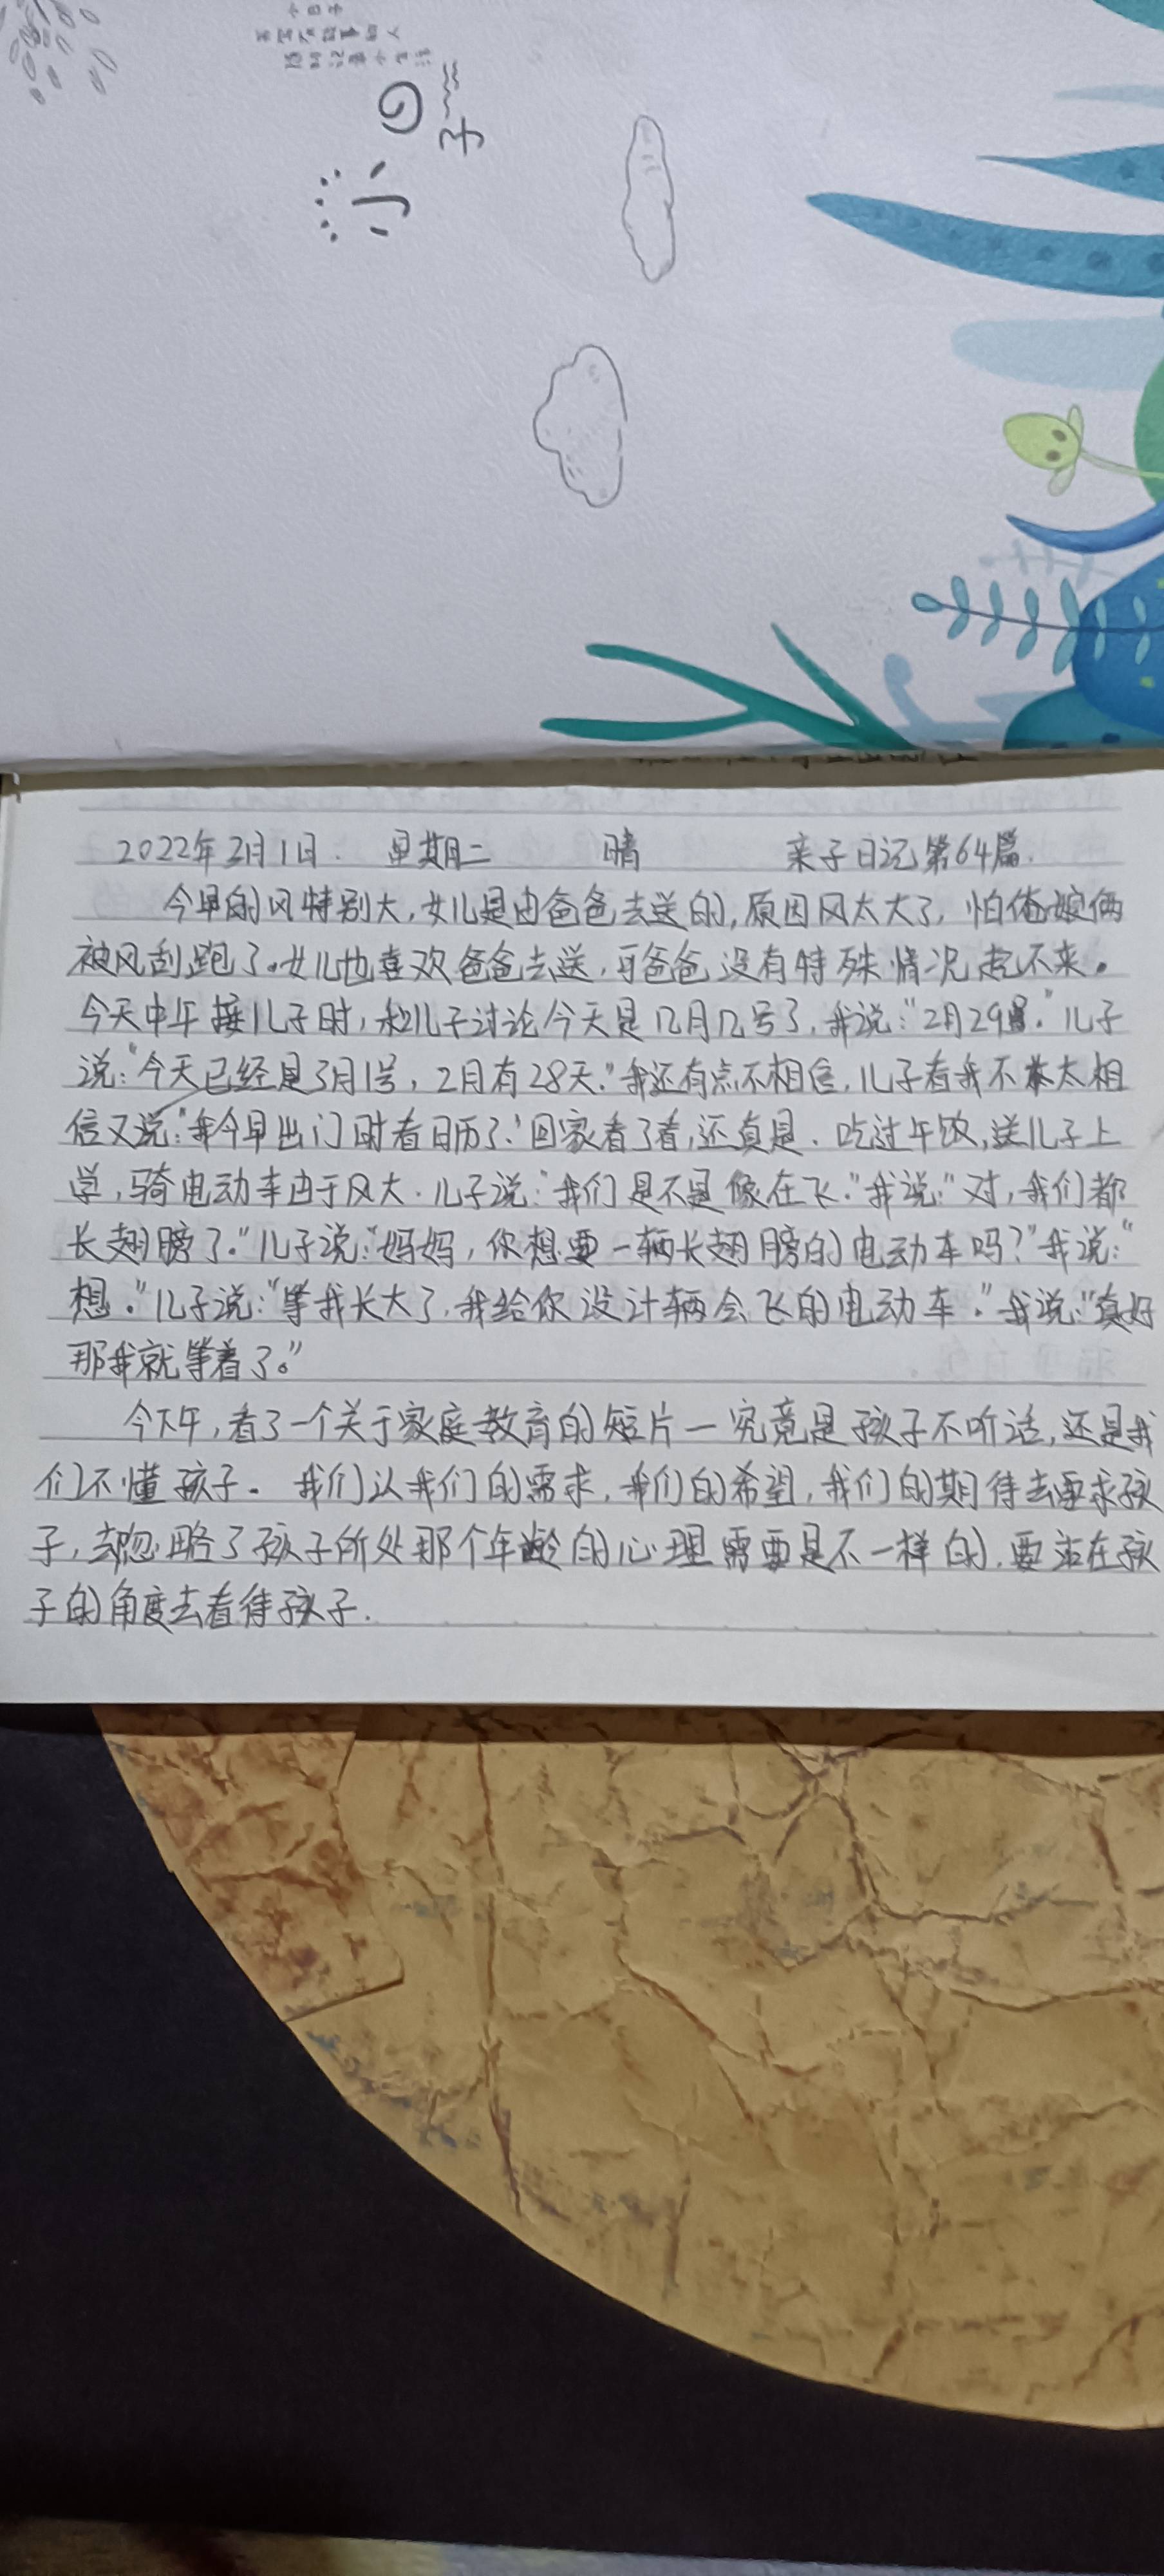 小日子
2022年3月1日. 星期二 晴 亲子日记第64篇.
今早的风特别大,女儿是由爸爸去送的,原因风太大了,怕俺娘俩
被风刮跑了。女儿也喜欢爸爸去送,可爸爸没有特殊情况起不来。
今天中午接儿子时,和儿子讨论今天是几月几号了,我说:"2月29号."儿子
说:"今天已经是3月1号,2月有28天."我还有点不相信.儿子看我不太相
信又说:"我今早出门时看日历了."回家看了看,还真是.吃过午饭,送儿子上
学,骑电动车由于风大.儿子说:"我们是不是像在飞."我说:"对,我们都
长翅膀了."儿子说:"妈妈,你想要一辆长翅膀的电动车吗?"我说:"
想."儿子说:"等我长大了,我给你设计辆会飞的电动车."我说:"真好
那我就等着了。"
今下午,看了一个关于家庭教育的短片一究竟是孩子不听话,还是我
们不懂孩子。我们认我们的需求,我们的希望,我们的期待去要求孩
子,却忽略了孩子所处那个年龄的心理需要是不一样的.要站在孩
子的角度去看待孩子.